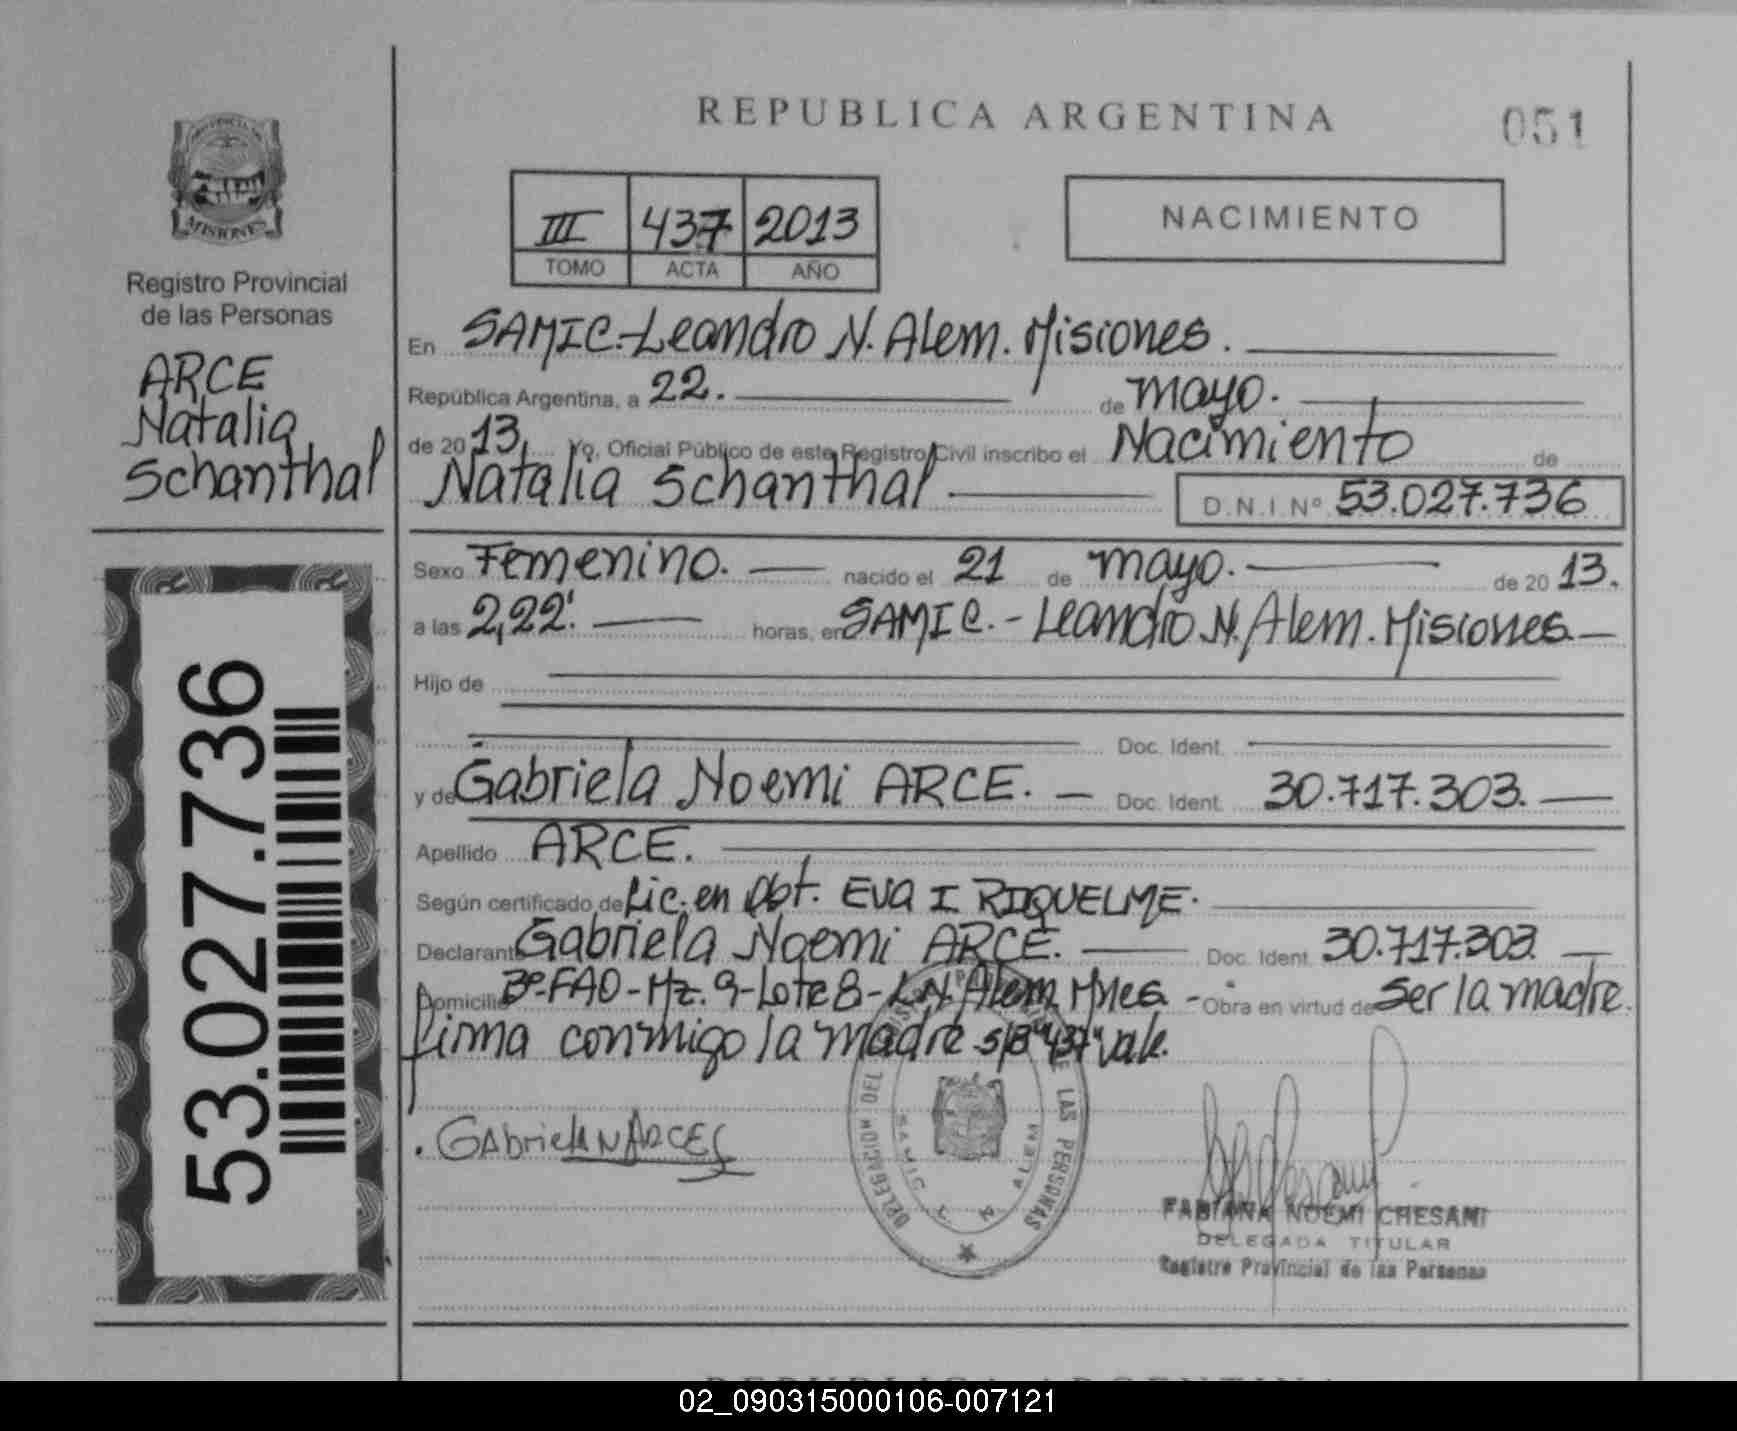 REPUBLICA ARGENTINA
051
III 437 2013
TOMO ACTA AÑO
NACIMIENTO
MISIONES
Registro Provincial
de las Personas
ARCE
Natalia
Schanthal
53.027.736
En SAMIC.-Leandro N. Alem. Misiones.
República Argentina, a 22. de mayo.
de 2013. Yo, Oficial Público de este Registro Civil inscribo el Nacimiento de
Natalia Schanthal D.N.I. Nº 53.027.736
Sexo Femenino. nacido el 21 de mayo. de 2013.
a las 2,22'. horas, en SAMIC.- Leandro N. Alem. Misiones
Hijo de
Doc. Ident.
y de Gabriela Noemi ARCE. Doc. Ident. 30.717.303.
Apellido ARCE.
Según certificado de Lic. en Obt. EVA I RIQUELME.
Declarante Gabriela Noemi ARCE. Doc. Ident. 30.717.303.
Domicilio Bº-FAO-Mz.9-Lote 8-L.N.Alem. Mnes - Obra en virtud de Ser la madre.
firma conmigo la madre s/B "437" Vale.
Gabriela N ARCE
DELEGACION DEL LAS PERSONAS
SAMIC ALEM
FABIANA NOEMI CHESANI
DELEGADA TITULAR
Registro Provincial de las Personas
REPUBLICA ARGENTINA
02_090315000106-007121